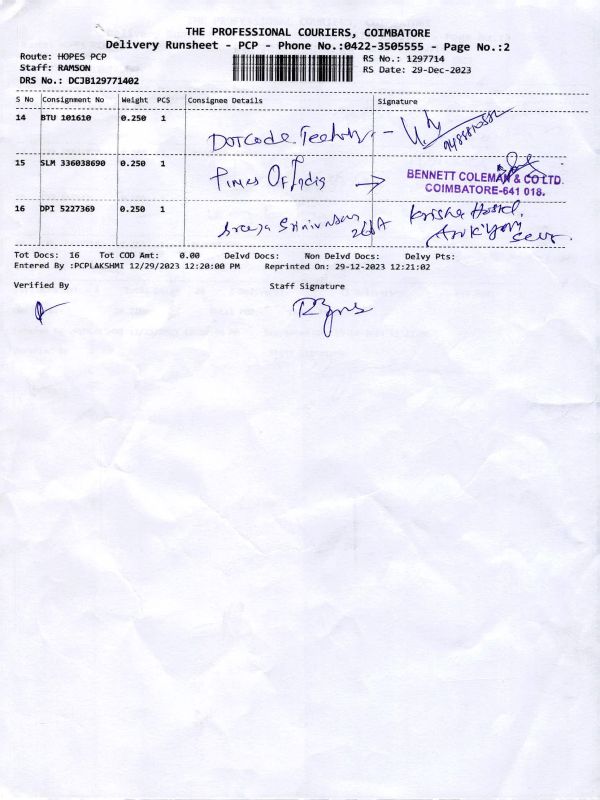 THE PROFESSIONAL COURIERS, COIMBATORE
Delivery Runsheet - PCP - Phone No.:0422-3505555 - Page No.:2
Route: HOPES PCP
RS No.: 1297714
Staff: RAMSON
RS Date: 29-Dec-2023
DRS No.: DCJB129771402
S No Consignment No Weight PCS Consignee Details Signature
14 BTU 101610 0.250 1
DOTCode
15 SLM 336038690 0.250 1
Times Of India
BENNETT COLEMAN & CO LTD.
COIMBATORE-641 018.
16 DPI 5227369 0.250 1
Sreeja Srinivasan
Krisha Hostel,
Tot Docs: 16 Tot COD Amt: 0.00 Delvd Docs: Non Delvd Docs: Delvy Pts:
Entered By :PCPLAKSHMI 12/29/2023 12:20:00 PM Reprinted On: 29-12-2023 12:21:02
Verified By Staff Signature